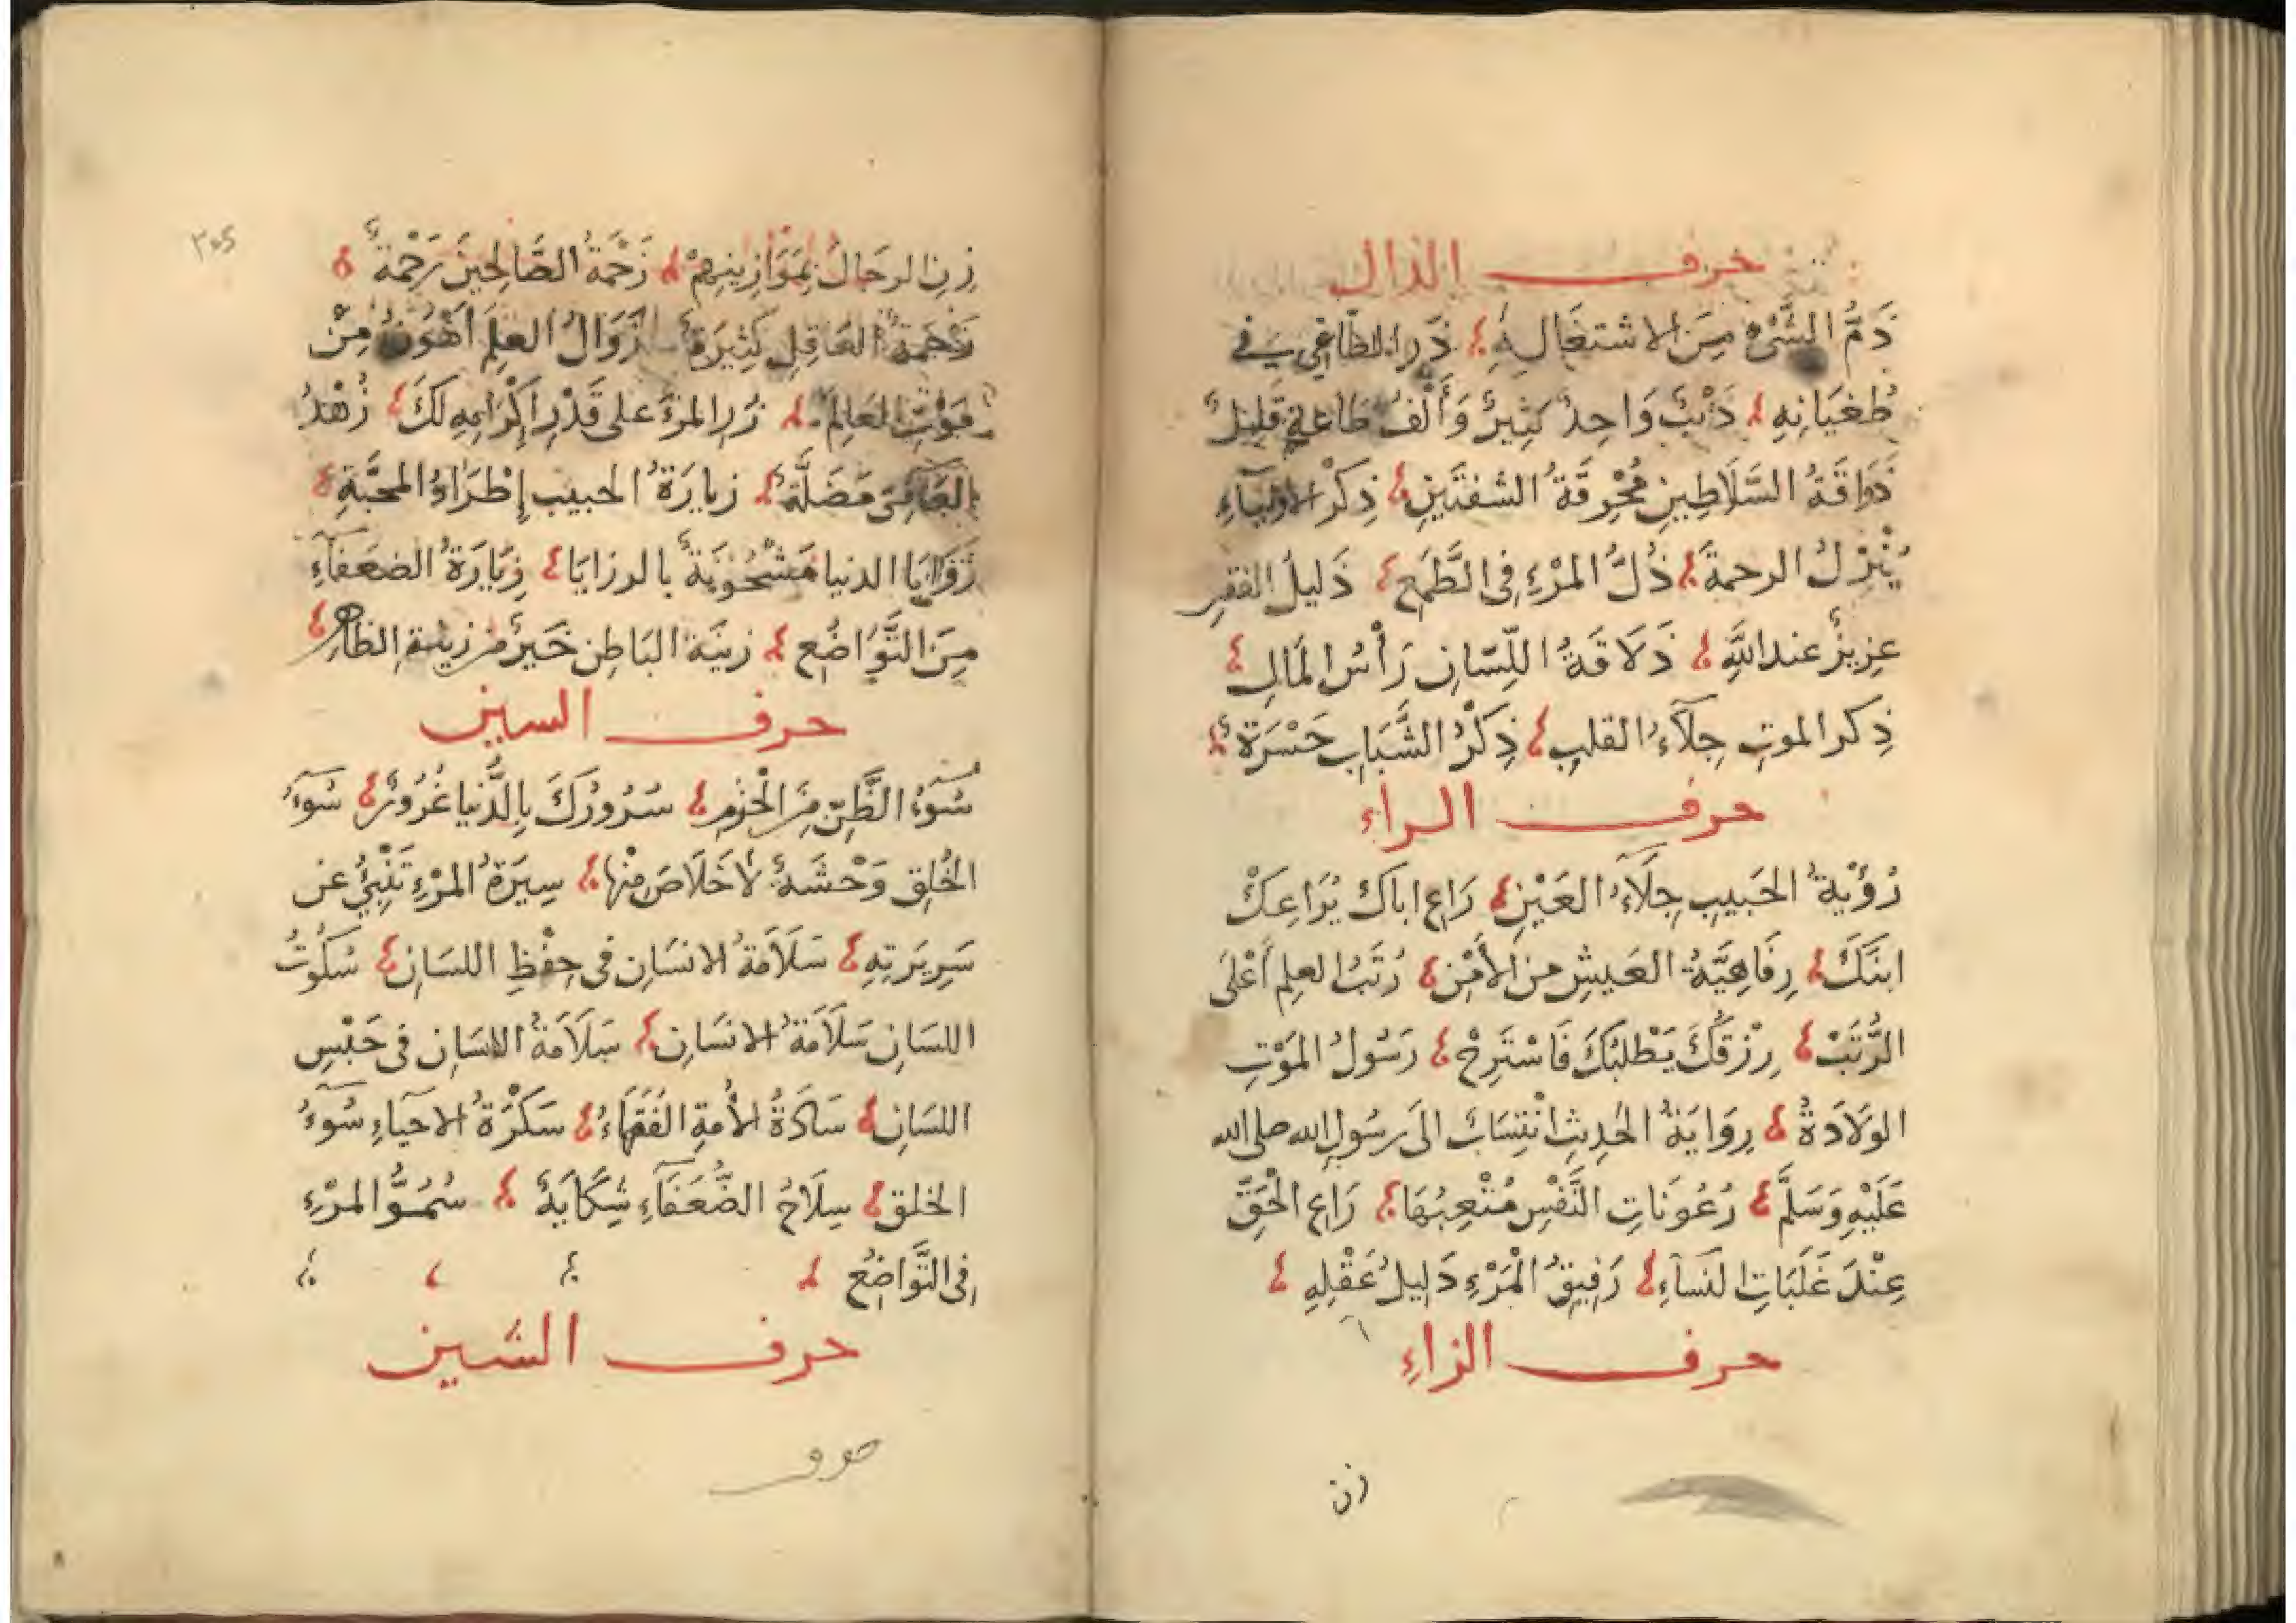 حرف الذال
ذَمُّ الشَّئِ مِنَ الاشتغَالِ بِهِ ذَرِ الطَّاغِي في
طُغيَانِهِ ذَنْبٌ وَاحِدٌ كَثِيرٌ وَأَلْفُ طَاعَةٍ قَلِيلٌ
ذَوَاقَةُ السَّلَاطِينِ مُحْرِقَةُ الشفتَينِ ذِكرُ الاولياءِ
يُنْزِلُ الرحمةَ ذُلُّ المَرْءِ فِى الطَّمَعِ ذَليلُ الفقرِ
عزِيزٌ عند اللَّهِ ذَلَاقَةُ اللِّسَانِ رَأْسُ المَالِ
ذِكر الموتِ جِلَآءُ القلبِ ذِكْرُ الشَّبَابِ حَسْرَةٌ
حرف الراء
رُؤْيَةُ الحَبِيبِ جِلَآءُ العَيْنِ رَاعِ اباكَ يُرَاعِكْ
ابنَكَ رِفَاهِيَّةُ العَيشِ من الأَمْنِ رُتَبُ العِلم أَعْلَى
الرُّتَبْ رِزْقُكَ يَطْلُبُكَ فَاسْتَرِحْ رَسُولُ المَوْتِ
الوَلَادَةُ رِوَايَةُ الحَدِيثِ انْتِسَابٌ الَى رسُولِ الله صلى الله
عَلَيْهِ وَسَلَّمَ رُعُونَاتِ النَّفْسِ مُتْعِبُهَا رَاعِ الْحَقَّ
عِنْدَ غَلَبَاتِ النسَآءِ رَفِيقُ الْمَرْءِ دَلِيلُ عَقْلِهِ
حرف الزاءِ
زن
٣٠٥
زِنِ الرجَالَ بِمَوَازِينِهِمْ زَحْمَةُ الصَّالِحِينَ رَحْمَةٌ
زَحْمَةُ العَاقِلِ كَثِيرَةٌ زَوَالُ العِلْمِ أَهْوَنُ مِنْ
مَوْتِ العَالِمْ زُرِ المَرْءَ على قَدْرِ اِكْرَامِهِ لَكَ زُهْدُ
العَامِىِّ مَضَلَّةٌ زيارَةُ الحبيب إِطْرَاءُ المحَبَّةِ
زَوَايَا الدنيا مَشْحُونَةٌ بالرزايَا زِيَارَةُ الضعَفآءِ
مِنَ التَّوَاضُعِ زينَة البَاطِن خَيرٌ من زينةِ الظاهر
حرف السين
سُوءُ الظَّنِّ مِنَ الْحَزمِ سُرُورُكَ بِالدُّنيا غُرُورٌ سُوءُ
الخُلقِ وَحْشَةٌ لَا خَلَاصَ مِنْها سِيرَةُ المَرْءِ تُنْبِئُ عن
سَرِيرَتِهِ سَلَامَةُ الانسَانِ فى حِفْظِ اللسَانِ سُكُوتُ
اللسَانِ سَلَامَةُ الانسَانِ سَلَامَةُ الانسَانِ فى حَبْسِ
اللسَانِ سَادَةُ الأُمةِ الفُقَهَاءُ سَكْرَةُ الاحيآءِ سُوءُ
الخلق سِلَاحُ الضُّعَفَآءِ شِكَايَةٌ سُمُوُّ المَرْءِ
فِى التَّوَاضُعِ
حرف الشين
حرف